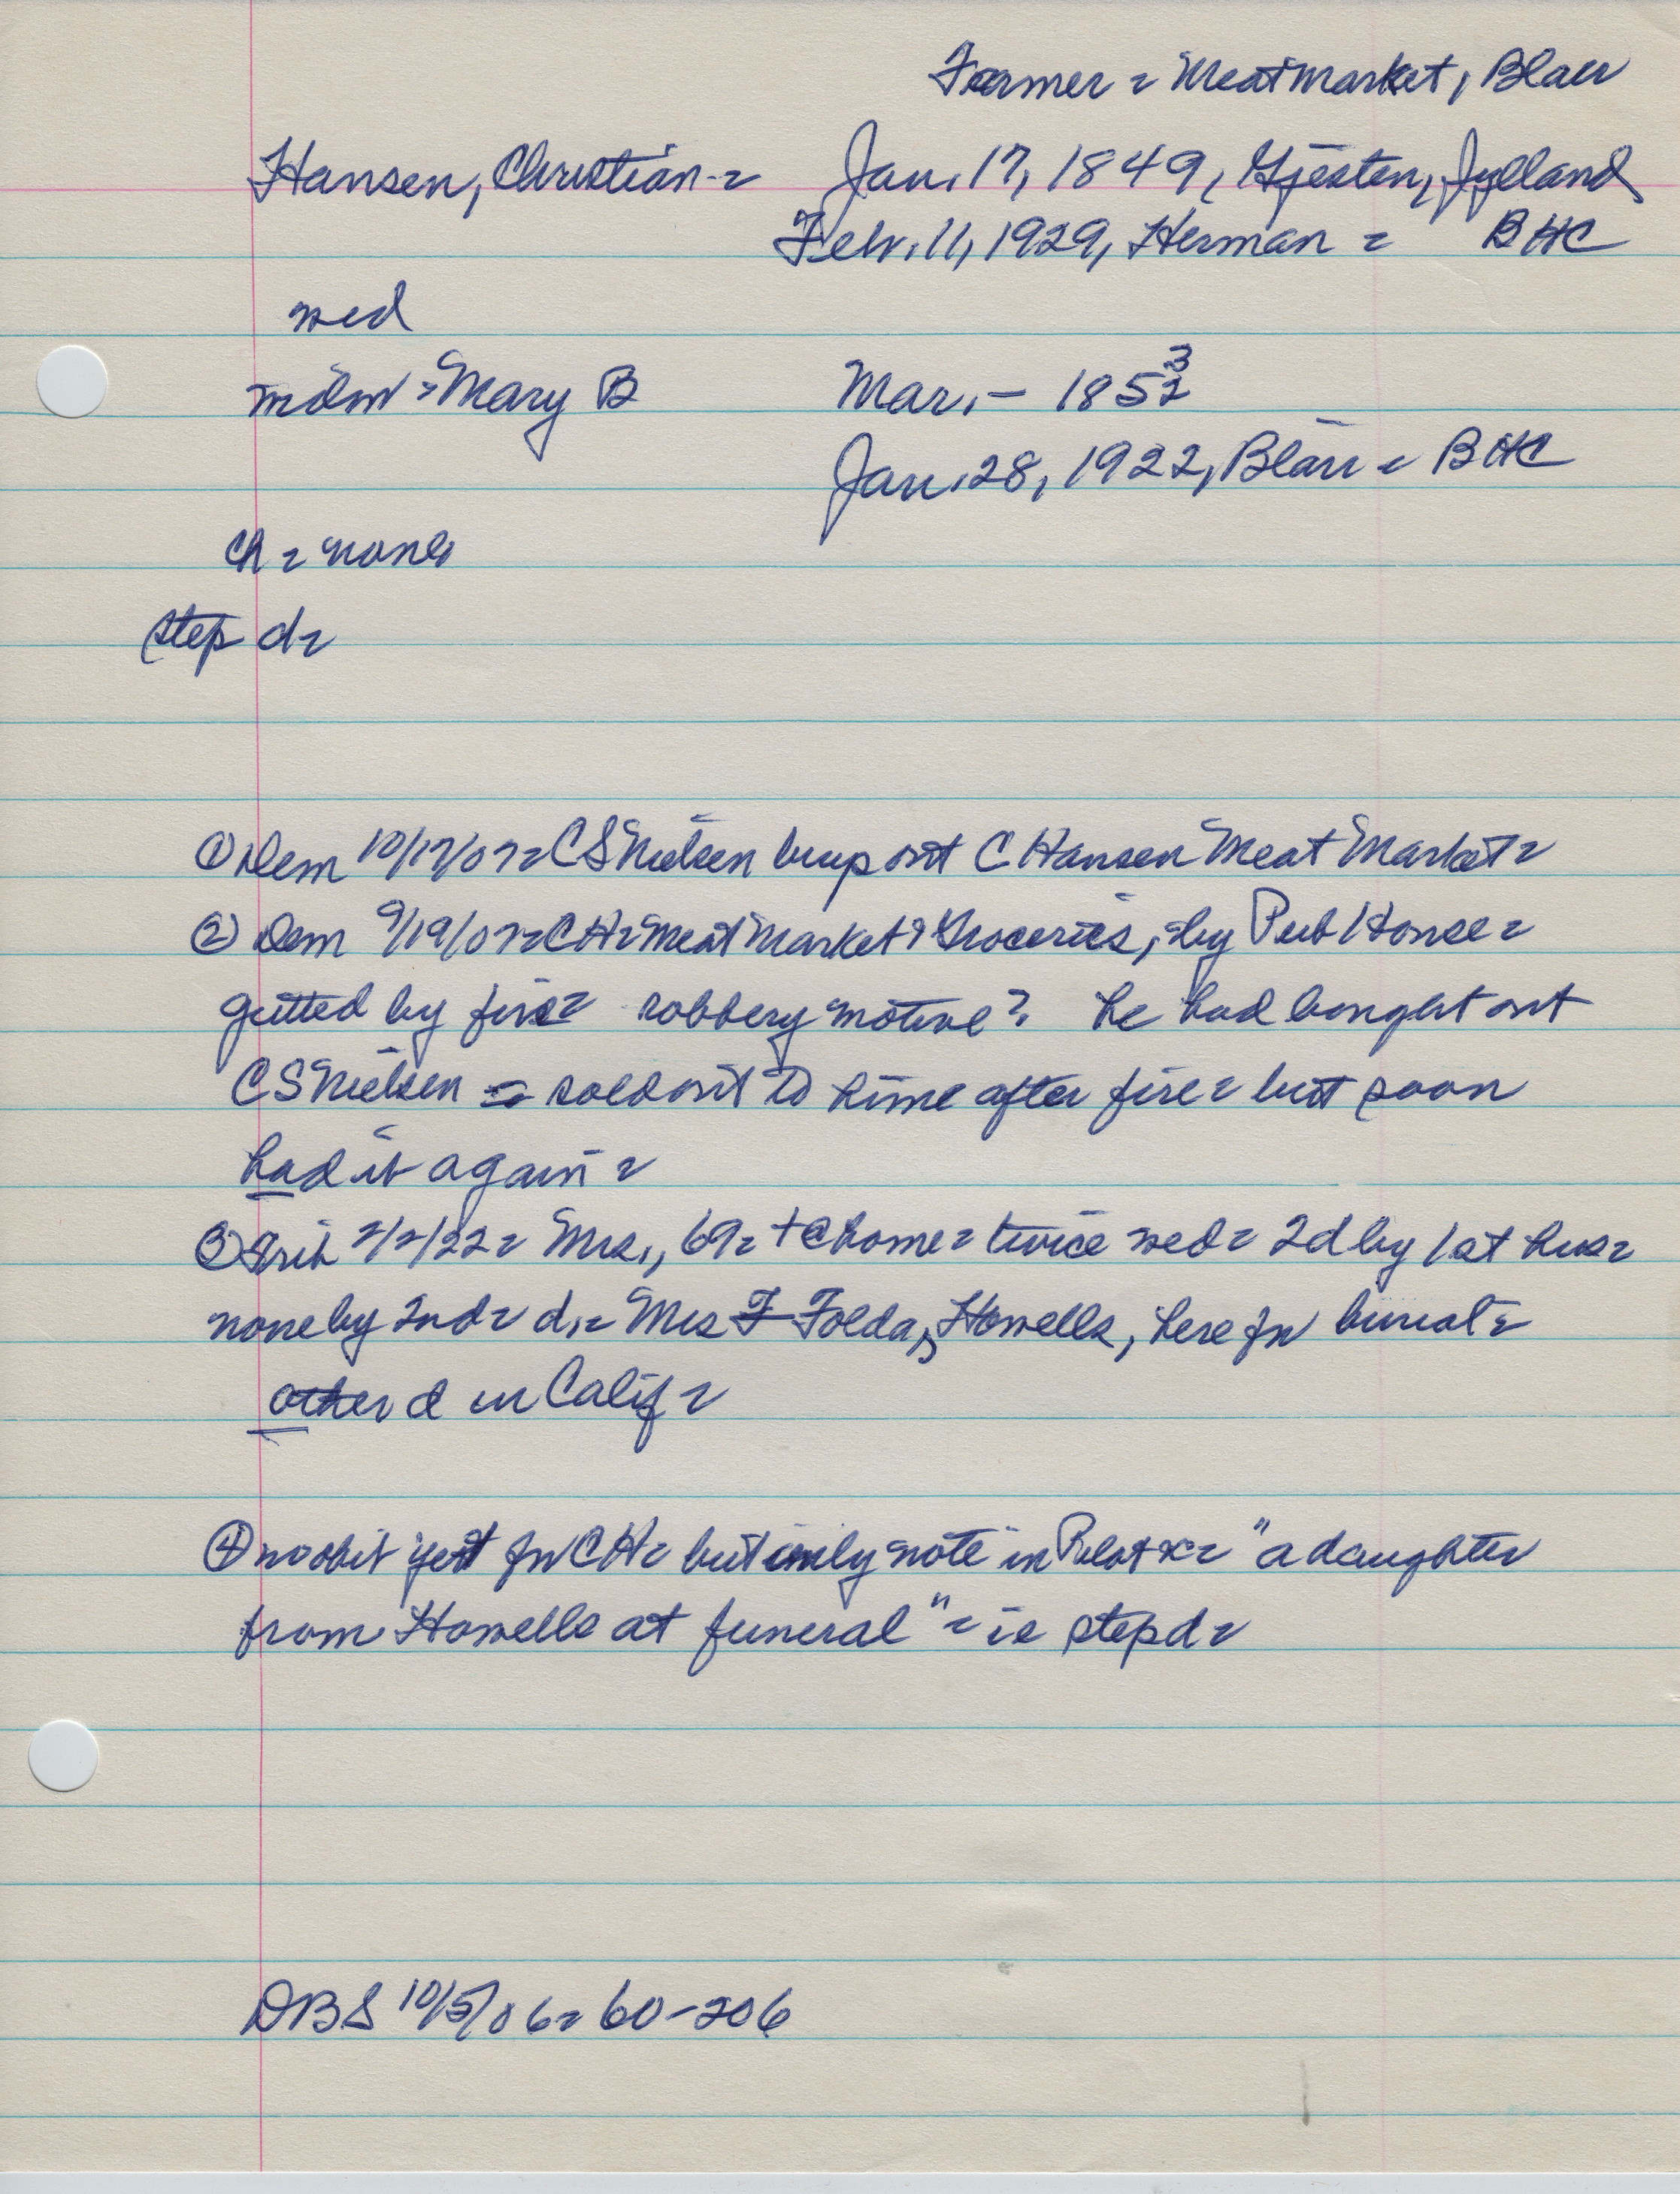 Farmer = Meat Market, Blair
Hansen, Christian - Jan. 17, 1849, Gjesten, Jylland
Feb. 11, 1929, Herman = BHC
wed
Mary B Mar. - 1852 3
Jan. 28, 1922, Blair = BHC
ch = none
step d =
① Dem 10/17/07 = CS Nielsen buys out C Hansen Meat Market =
② Dem 9/19/07 = CH = Meat Market & Groceries, by Pub House =
gutted by fire = robbery motive? he had bought out
CS Nielsen = sold out to him after fire = but soon
had it again =
③ Trib 2/2/22 = Mrs., 69 = + @ home = twice wed = 2d by 1st hus =
none by 2nd = d. = Mrs F Folda, Howells, here for burial =
other d in Calif =
④ no obit yet for CH = but only note in Pilot = "a daughter
from Howells at funeral" = is step d =
DBS 10/5/06 = 60-206